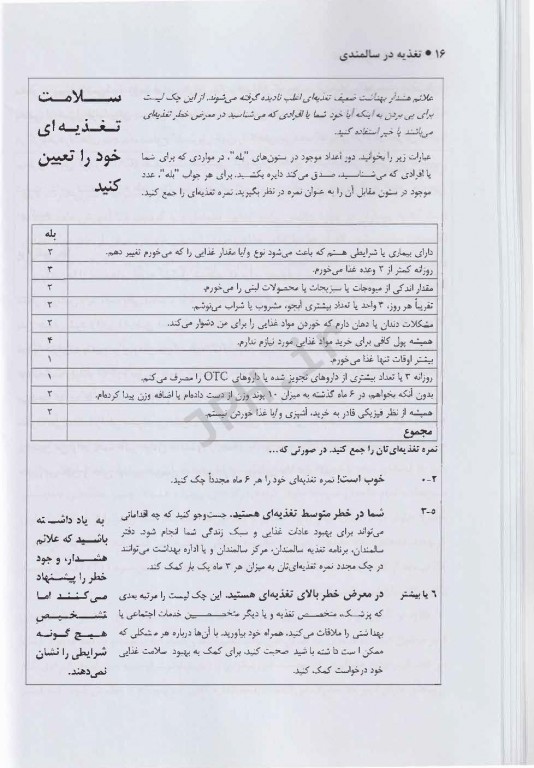 ۱۶ ● تغذیه در سالمندی
سلامت
تغذیه‌ای
خود را تعیین
کنید
علائم هشدار بهداشت ضعیف تغذیه‌ای اغلب نادیده گرفته می‌شوند. از این چک لیست
برای پی بردن به اینکه آیا خود شما یا افرادی که می‌شناسید در معرض خطر تغذیه‌ای
می‌باشند یا خیر استفاده کنید.
عبارات زیر را بخوانید. دور اعداد موجود در ستون‌های "بله"، در مواردی که برای شما
یا افرادی که می‌شناسید، صدق می‌کند دایره بکشید. برای هر جواب "بله"، عدد
موجود در ستون مقابل آن را به عنوان نمره در نظر بگیرید. نمره تغذیه‌ای را جمع کنید.
بله
دارای بیماری یا شرایطی هستم که باعث می‌شود نوع و/یا مقدار غذایی را که می‌خورم تغییر دهم. ۲
روزانه کمتر از ۲ وعده غذا می‌خورم. ۳
مقدار اندکی از میوه‌جات یا سبزیجات یا محصولات لبنی را می‌خورم. ۲
تقریباً هر روز، ۳ واحد یا تعداد بیشتری آبجو، مشروب یا شراب می‌نوشم. ۲
مشکلات دندان یا دهان دارم که خوردن مواد غذایی را برای من دشوار می‌کند. ۲
همیشه پول کافی برای خرید مواد غذایی مورد نیازم ندارم. ۴
بیشتر اوقات تنها غذا می‌خورم. ۱
روزانه ۳ یا تعداد بیشتری از داروهای تجویز شده یا داروهای OTC را مصرف می‌کنم. ۱
بدون آنکه بخواهم، در ۶ ماه گذشته به میزان ۱۰ پوند وزن از دست داده‌ام یا اضافه وزن پیدا کرده‌ام. ۲
همیشه از نظر فیزیکی قادر به خرید، آشپزی و/یا غذا خوردن نیستم. ۲
مجموع
نمره تغذیه‌ای‌تان را جمع کنید. در صورتی که...
۰-۲ خوب است! نمره تغذیه‌ای خود را هر ۶ ماه مجدداً چک کنید.
۳-۵ شما در خطر متوسط تغذیه‌ای هستید. جست‌وجو کنید که چه اقداماتی
می‌تواند برای بهبود عادات غذایی و سبک زندگی شما انجام شود. دفتر
سالمندان، برنامه تغذیه سالمندان، مرکز سالمندان و یا اداره بهداشت می‌توانند
در چک مجدد نمره تغذیه‌ای‌تان به میزان هر ۳ ماه یک بار کمک کند.
۶ یا بیشتر در معرض خطر بالای تغذیه‌ای هستید. این چک لیست را مرتبه بعدی
که پزشک، متخصص تغذیه و یا دیگر متخصصین خدمات اجتماعی یا
بهداشتی را ملاقات می‌کنید، همراه خود بیاورید. با آن‌ها درباره هر مشکلی که
ممکن است داشته باشید صحبت کنید. برای کمک به بهبود سلامت غذایی
خود درخواست کمک کنید.
به یاد داشته
باشید که علائم
هشدار، وجود
خطر را پیشنهاد
می‌کنند اما
تشخیص
هیچ گونه
شرایطی را نشان
نمی‌دهند.